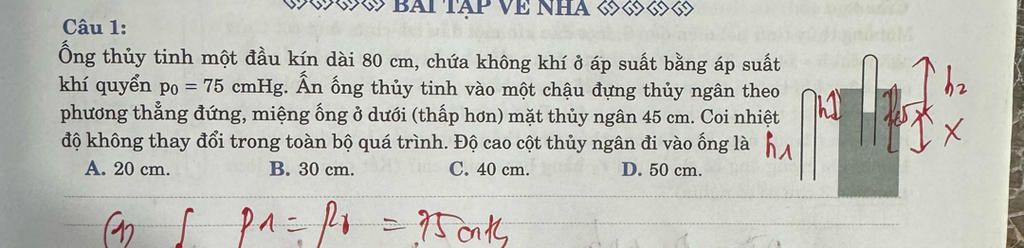 BÀI TẬP VỀ NHÀ
Câu 1:
Ống thủy tinh một đầu kín dài 80 cm, chứa không khí ở áp suất bằng áp suất
khí quyển p₀ = 75 cmHg. Ấn ống thủy tinh vào một chậu đựng thủy ngân theo
phương thẳng đứng, miệng ống ở dưới (thấp hơn) mặt thủy ngân 45 cm. Coi nhiệt
độ không thay đổi trong toàn bộ quá trình. Độ cao cột thủy ngân đi vào ống là
A. 20 cm. B. 30 cm. C. 40 cm. D. 50 cm.
h1
h2
x
h1
(1) { p1 = p0 = 75